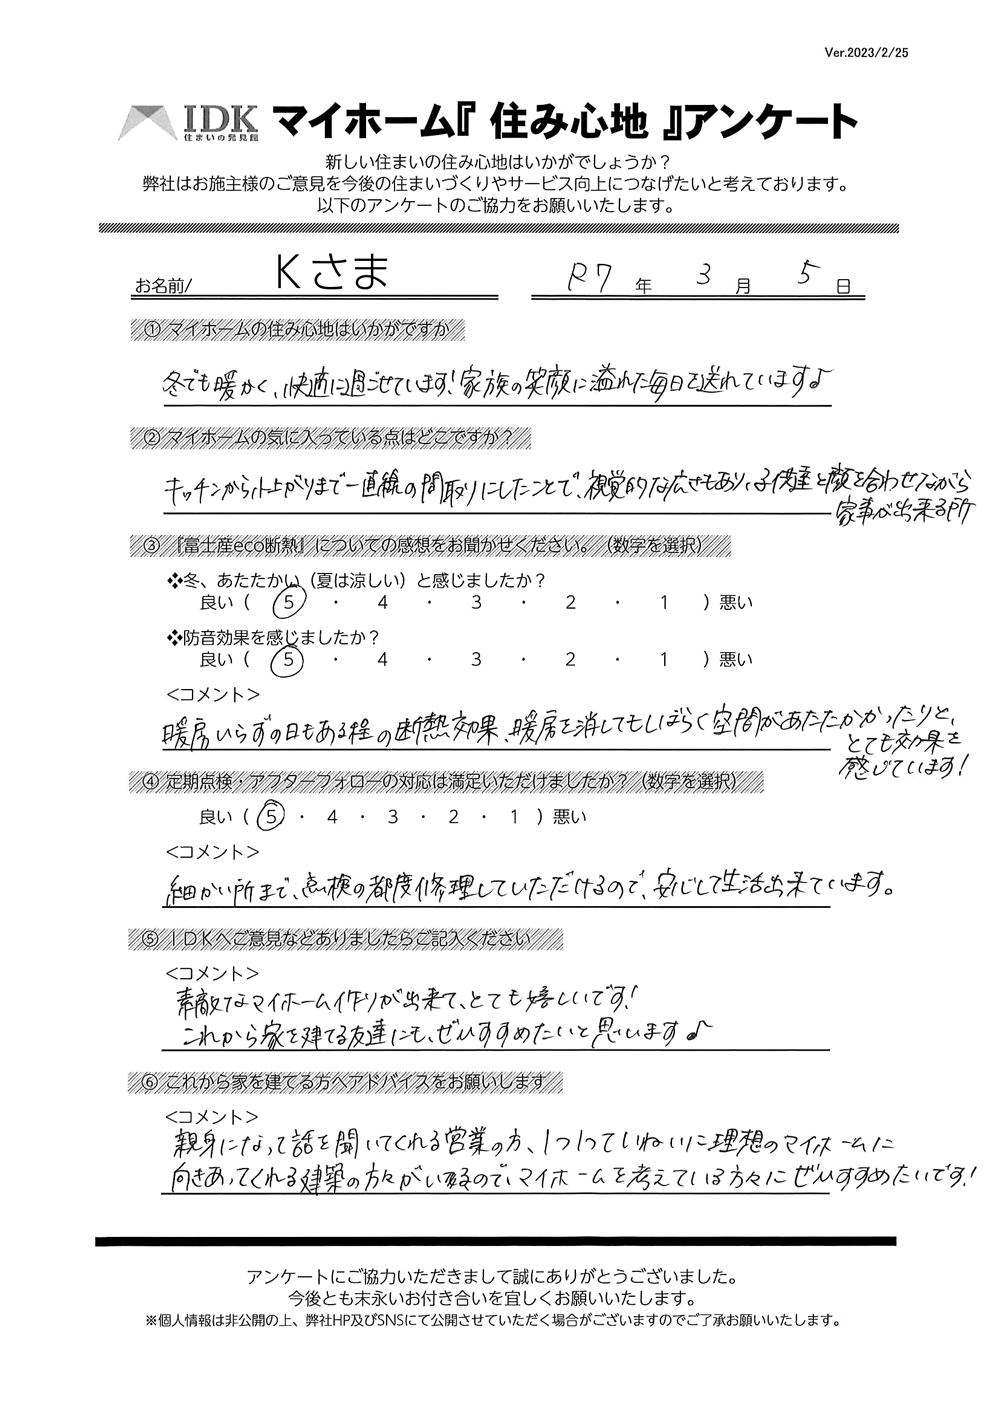 Ver.2023/2/25
IDK 住まいの発見館 マイホーム『住み心地』アンケート
新しい住まいの住み心地はいかがでしょうか？
弊社はお施主様のご意見を今後の住まいづくりやサービス向上につなげたいと考えております。
以下のアンケートのご協力をお願いいたします。
お名前/ Kさま R7 年 3 月 5 日
① マイホームの住み心地はいかがですか
冬でも暖かく、快適に過ごせています！家族の笑顔に溢れた毎日を送れています♪
② マイホームの気に入っている点はどこですか？
キッチンから小上がりまで一直線の間取りにしたことで、視覚的な広さもあり、子供達と顔を合わせながら
家事が出来る所
③ 『富士産eco断熱』についての感想をお聞かせください。（数字を選択）
❖冬、あたたかい（夏は涼しい）と感じましたか？
良い（ 5 ・ 4 ・ 3 ・ 2 ・ 1 ）悪い
❖防音効果を感じましたか？
良い（ 5 ・ 4 ・ 3 ・ 2 ・ 1 ）悪い
＜コメント＞
暖房いらずの日もある程の断熱効果、暖房を消してもしばらく空間があたたかかったりと、
とても効果を
感じています！
④ 定期点検・アフターフォローの対応は満足いただけましたか？（数字を選択）
良い（ 5 ・ 4 ・ 3 ・ 2 ・ 1 ）悪い
＜コメント＞
細かい所まで、点検の都度修理していただけるので、安心して生活出来ています。
⑤ IDKへご意見などありましたらご記入ください
＜コメント＞
素敵なマイホーム作りが出来て、とても嬉しいです！
これから家を建てる友達にも、ぜひすすめたいと思います♪
⑥ これから家を建てる方へアドバイスをお願いします
＜コメント＞
親身になって話を聞いてくれる営業の方、1つ1つていねいに理想のマイホームに
向きあってくれる建築の方々がいるので、マイホームを考えている方々にぜひすすめたいです！
アンケートにご協力いただきまして誠にありがとうございました。
今後とも末永いお付き合いを宜しくお願いいたします。
※個人情報は非公開の上、弊社HP及びSNSにて公開させていただく場合がございますのでご了承お願いいたします。